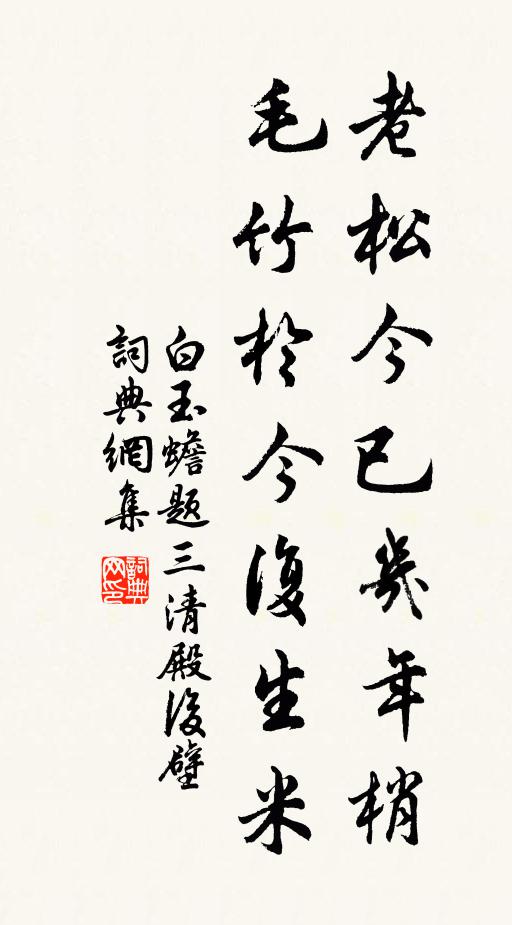 老松今已幾年梢
毛竹於今復生米
白玉蟾題三清殿後壁
詞典網集
詞典网印